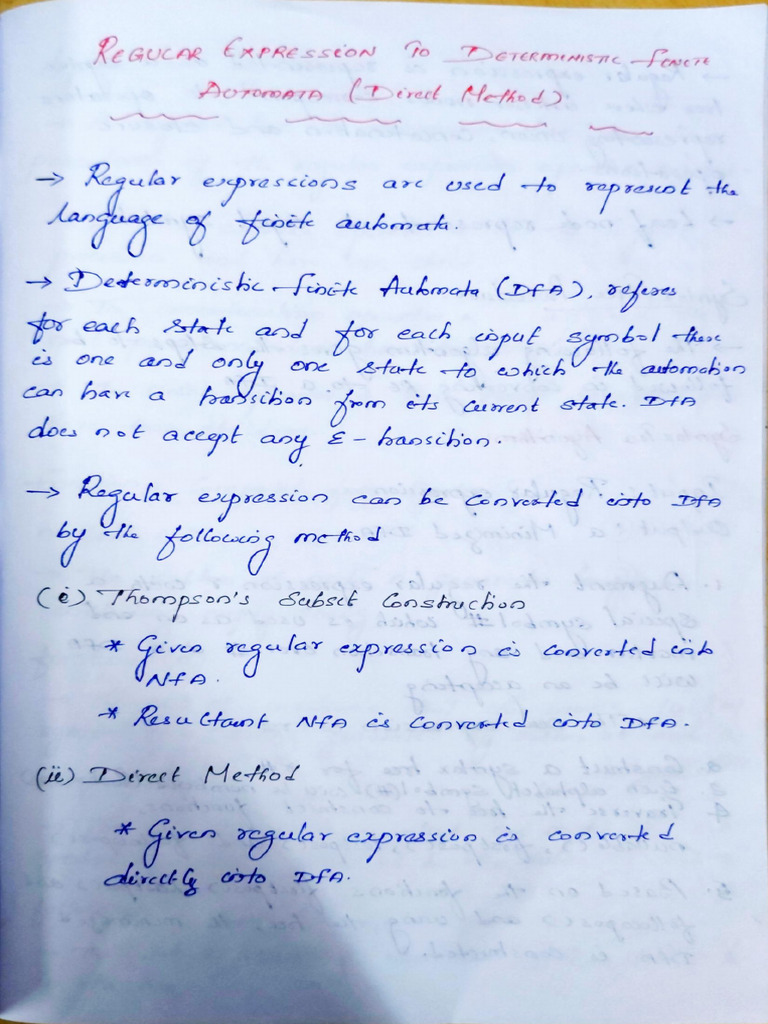 REGULAR EXPRESSION TO DETERMINISTIC FINITE
AUTOMATA (Direct Method)
→ Regular expressions are used to represent the
language of finite automata.
→ Deterministic finite Automata (DFA), referes
for each state and for each input symbol there
is one and only one state to which the automation
can have a transition from its current state. DFA
does not accept any ε - transition.
→ Regular expression can be converted into DFA
by the following method
(i) Thompson's Subset Construction
* Given regular expression is converted into
NFA.
* Resultant NFA is converted into DFA.
(ii) Direct Method
* Given regular expression is converted
directly into DFA.